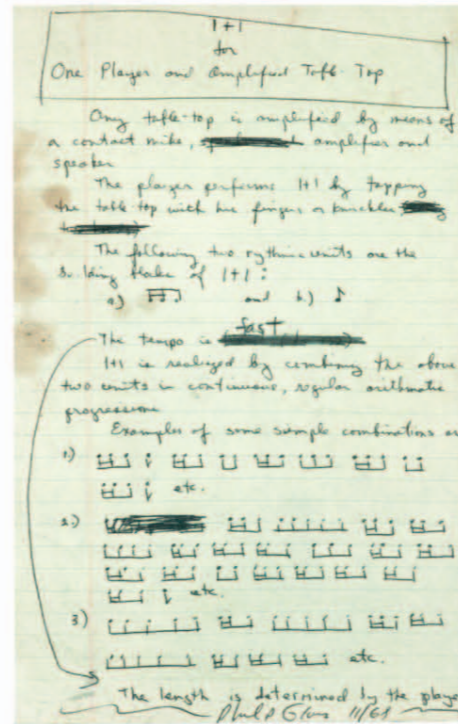 1+1
for
One Player and Amplified Table-Top
Any table-top is amplified by means of
a contact mike, amplifier and
speaker
The player performs 1+1 by tapping
the table top with his fingers or knuckles
The following two rythmic units are the
building blocks of 1+1:
a) and b)
The tempo is fast
1+1 is realized by combining the above
two units in continuous, regular arithmetic
progressions
Examples of some simple combinations are
1)
etc.
2)
etc.
3)
etc.
The length is determined by the player
Philip Glass 11/68